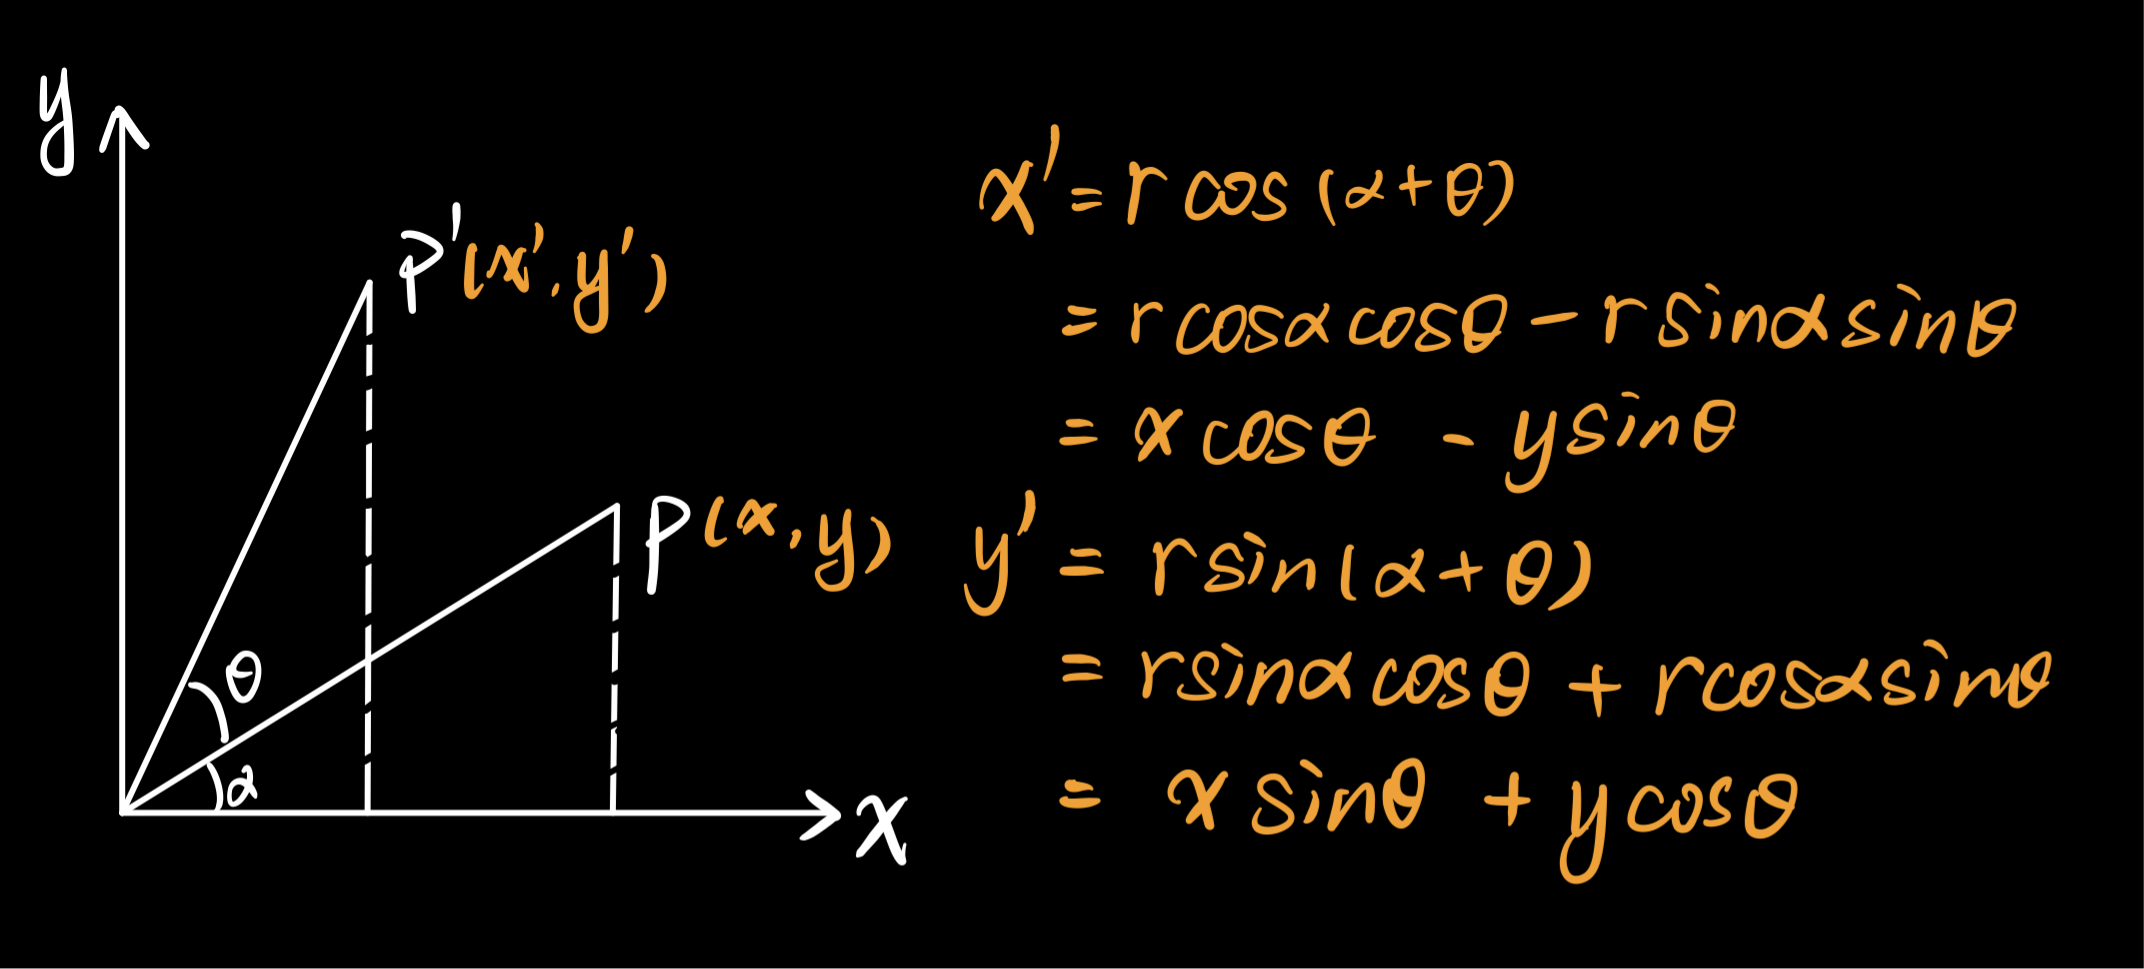 y
P'(x', y')
θ
α
P(x, y)
x
x' = r cos (α+θ)
= r cosα cosθ - r sinα sinθ
= x cosθ - y sinθ
y' = r sin(α+θ)
= r sinα cosθ + r cosα sinθ
= x sinθ + y cosθ